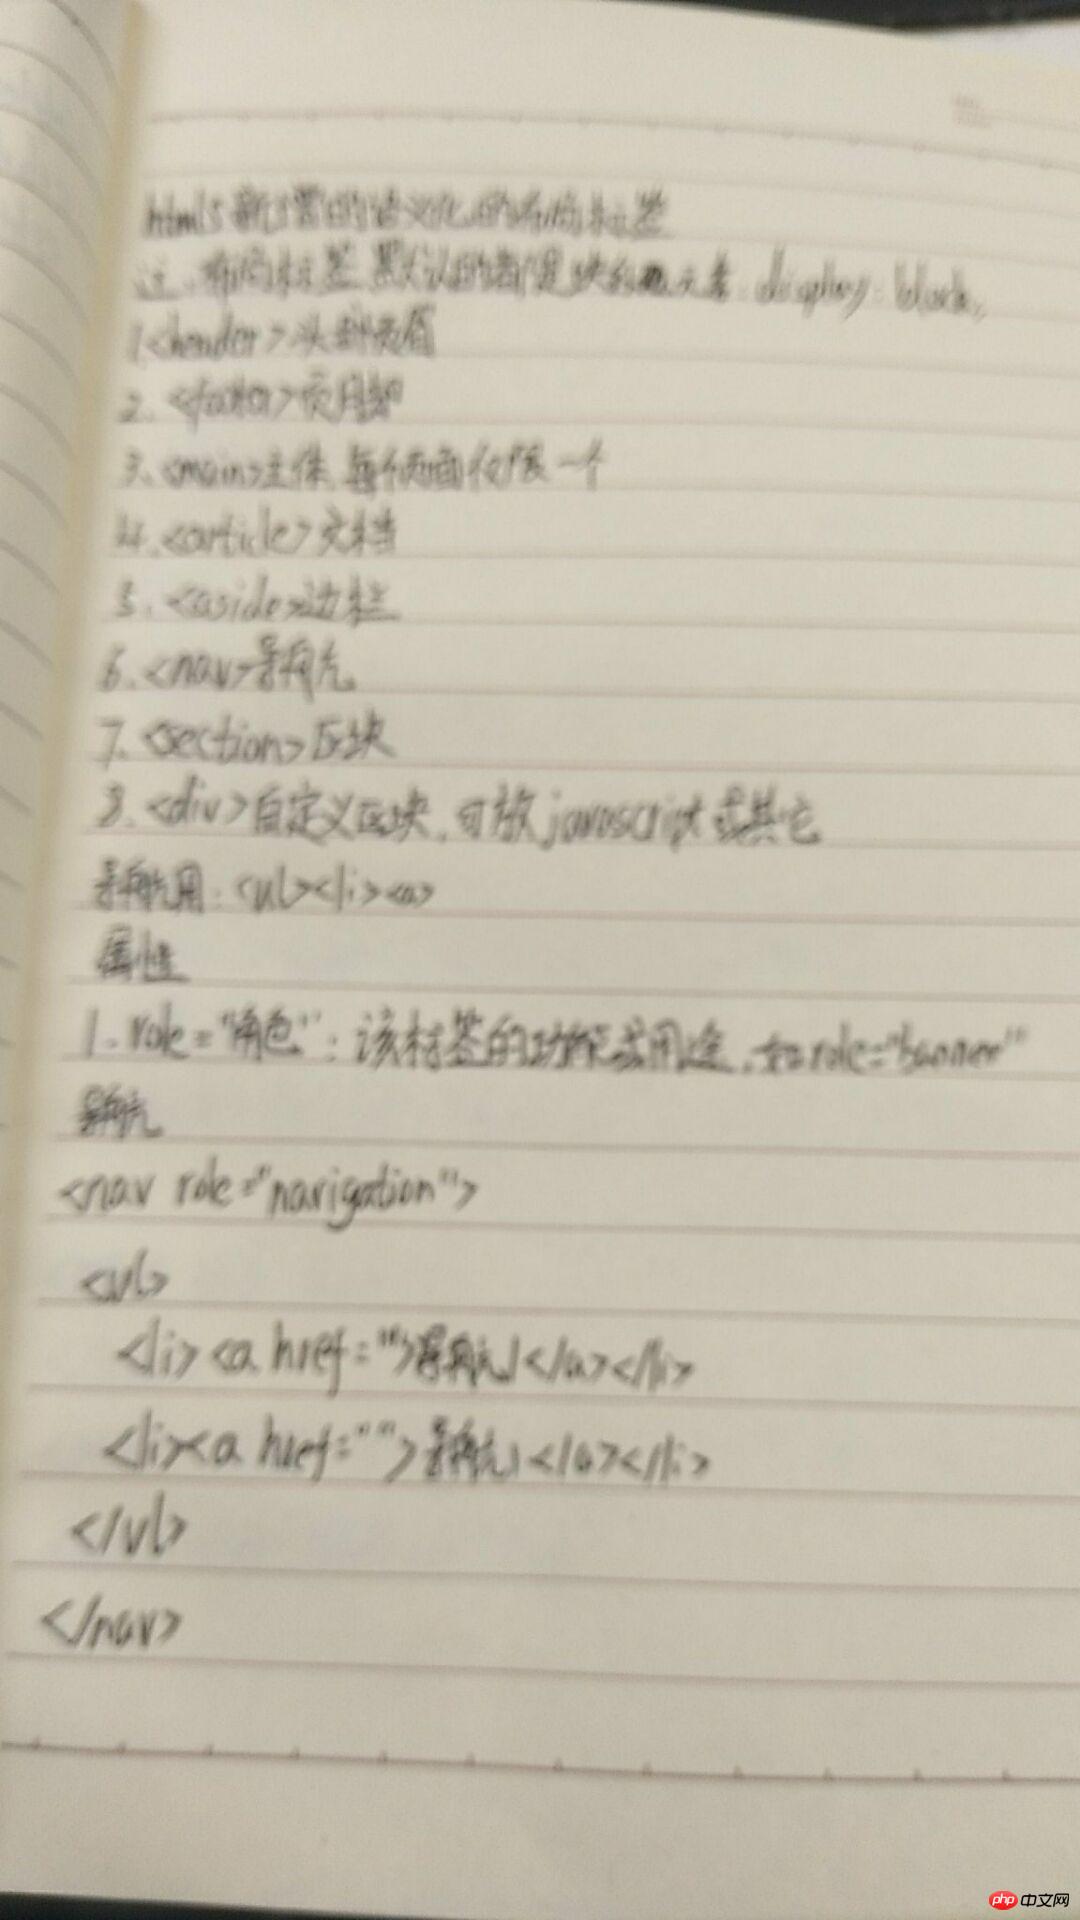 html5新增的语义化的布局标签
注:布局标签默认的都是块级元素:display:block;
1.<header>头部页眉
2.<footer>页脚
3.<main>主体,每个页面仅限一个
4.<article>文档
5.<aside>边栏
6.<nav>导航
7.<section>区块
8.<div>自定义区块,可放javascript或其它
导航用:<ul><li><a>
属性
1.role="角色":该标签的功能或用途,如role="banner"
导航
<nav role="navigation">
<ul>
<li><a href="">导航1</a></li>
<li><a href="">导航1</a></li>
</ul>
</nav>
php 中文网